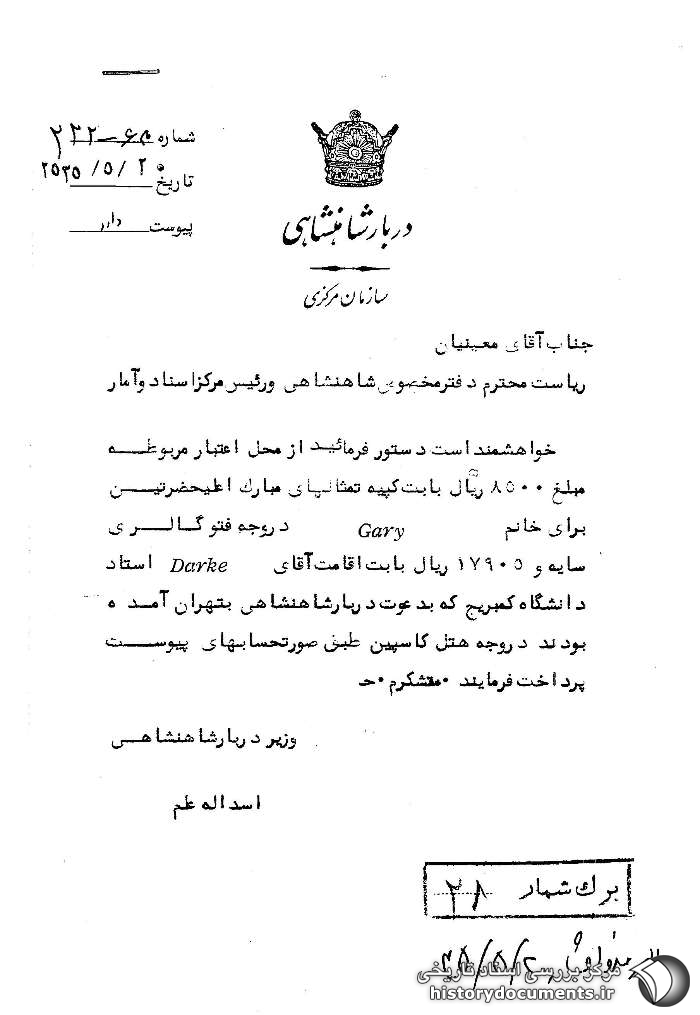 شماره ۶۰-۲۳۲
تاریخ ۲۵۳۵/۵/۲۰
پیوست دارد
دربار شاهنشاهی
سازمان مرکزی
جناب آقای معینیان
ریاست محترم دفتر مخصوص شاهنشاهی ورئیس مرکز اسناد و آمار
خواهشمند است دستور فرمائید از محل اعتبار مربوطه
مبلغ ۸۵۰۰ ریال بابت کپیه تمثالهای مبارک اعلیحضرتین
برای خانم Gary دروجه فتو گالری
سایه و ۱۷۹۰۵ ریال بابت اقامت آقای Darke استاد
دانشگاه کمبریج که بدعوت دربار شاهنشاهی بتهران آمده
بودند دروجه هتل کاسپین طبق صورتحسابهای پیوست
پرداخت فرمایند ۰ متشکرم ۰ حـ
وزیر دربار شاهنشاهی
اسداله علم
برگ شمار ۲۸
مرکز بررسی اسناد تاریخی
historydocuments.ir